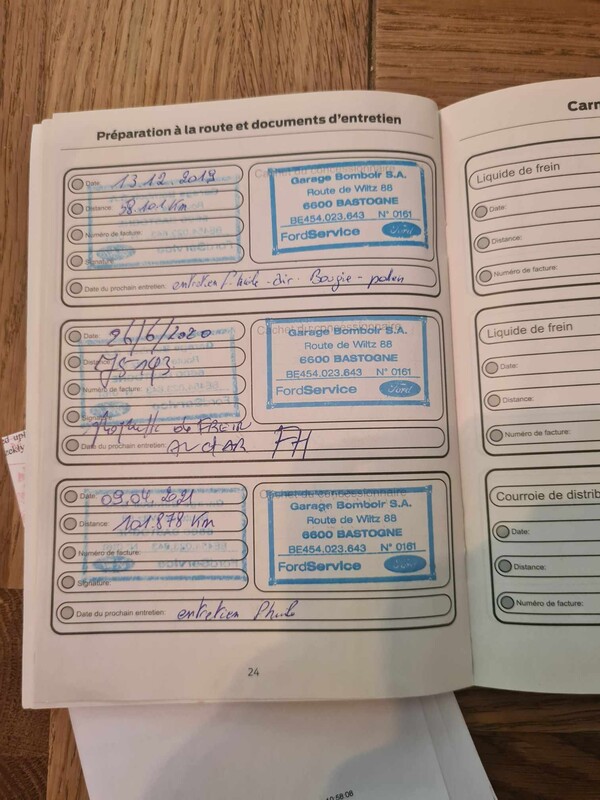 Préparation à la route et documents d'entretien
Date: 13.12.2019
Distance: 58.101 Km
Numéro de facture:
Signature:
Date du prochain entretien: entretien f. huile - air - Bougie - polen
Cachet du concessionnaire
Garage Bomboir S.A.
Route de Wiltz 88
6600 BASTOGNE
BE454.023.643 N° 0161
FordService Ford
Date: 26/6/2020
Distance: 75193
Numéro de facture:
Signature:
Plaquette de FREIN
Date du prochain entretien: AV et AR
Cachet du concessionnaire
Garage Bomboir S.A.
Route de Wiltz 88
6600 BASTOGNE
BE454.023.643 N° 0161
FordService Ford
Date: 09.04.2021
Distance: 101.878 Km
Numéro de facture:
Signature:
Date du prochain entretien: entretien f huile
Cachet du concessionnaire
Garage Bomboir S.A.
Route de Wiltz 88
6600 BASTOGNE
BE454.023.643 N° 0161
FordService Ford
24
Carn
Liquide de frein
Date:
Distance:
Numéro de facture:
Liquide de frein
Date:
Distance:
Numéro de facture:
Courroie de distrib
Date:
Distance:
Numéro de facture:
10:58:08